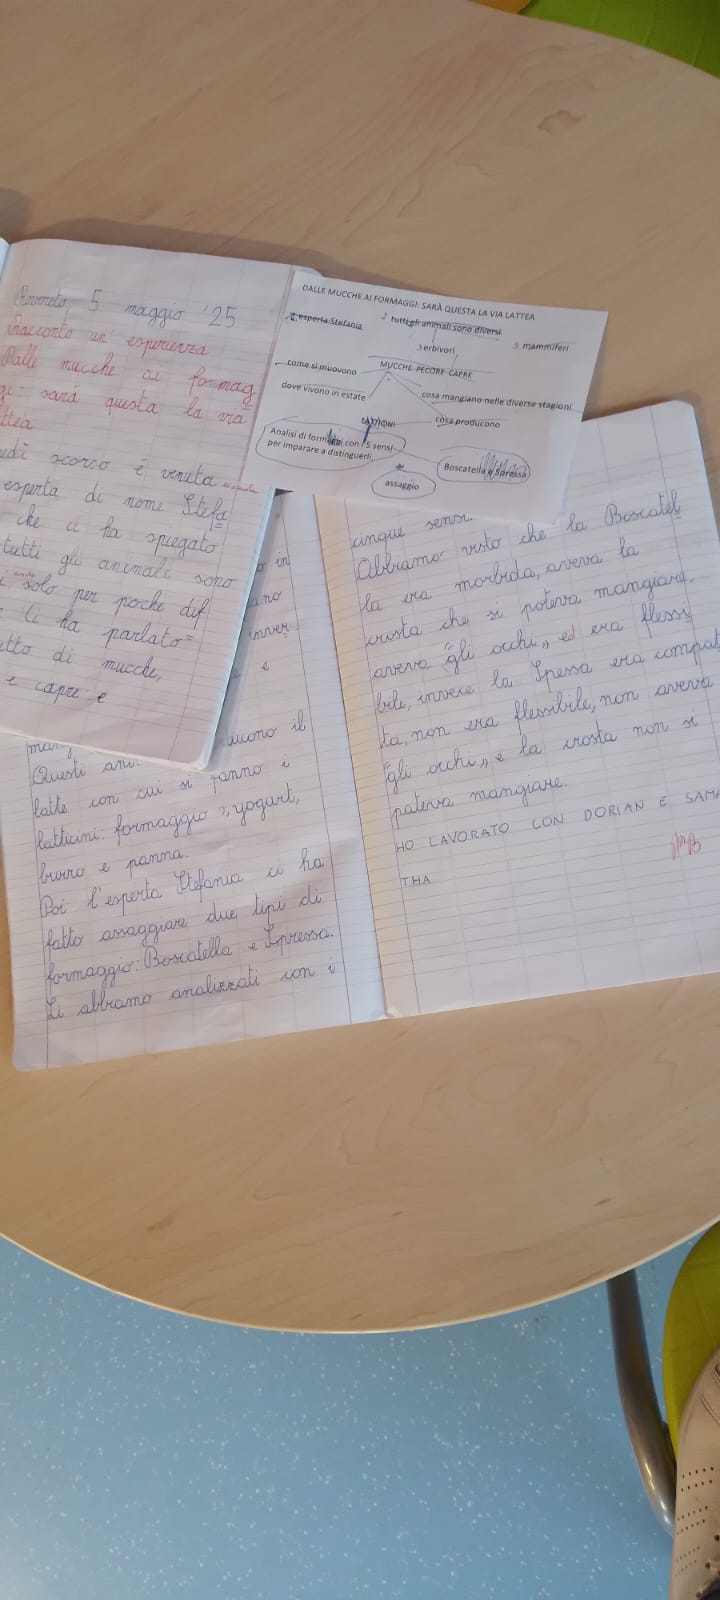 Rovereto, 5 maggio '25
Racconto un' esperienza
Dalle mucche ai formag
gi: sarà questa la via
lattea
scorso è venuta a scuola
esperta di nome Stefa
che ci ha spiegato
tutti gli animali sono
solo per poche dif
ci ha parlato
di mucche,
e capre e
DALLE MUCCHE AI FORMAGGI: SARÀ QUESTA LA VIA LATTEA
esperta Stefania
2 tutti gli animali sono diversi
3 erbivori
3 mammiferi
MUCCHE PECORE CAPRE
come si muovono
dove vivono in estate
cosa mangiano nelle diverse stagioni
cosa producono
Analisi di con 5 sensi
per imparare a distinguerli
Boscatella e Spressa
assaggio
in
e
Questi il
latte con cui si fanno i
latticini: formaggio, yogurt,
burro e panna.
Poi l'esperta Stefania ci ha
fatto assaggiare due tipi di
formaggio: Boscatella e Spressa.
Li abbiamo analizzati con i
cinque sensi.
Abbiamo visto che la Boscatel
la era morbida, aveva la
crosta che si poteva mangiare,
aveva "gli occhi" ed era flessi
bile, invece la Spessa era compat
ta, non era flessibile, non aveva
"gli occhi" e la crosta non si
poteva mangiare.
HO LAVORATO CON DORIAN E SAMA
THA